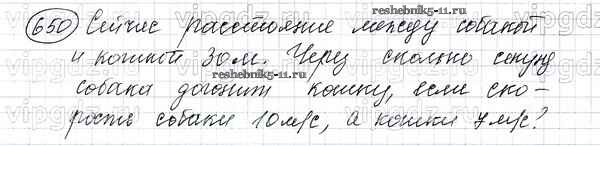 650 Сейчас расстояние между собакой
и кошкой 30 м. Через сколько секунд
reshebnik5-11.ru
reshebnik5-11.ru
собака догонит кошку, если ско-
рость собаки 10 м/с, а кошки 7 м/с?